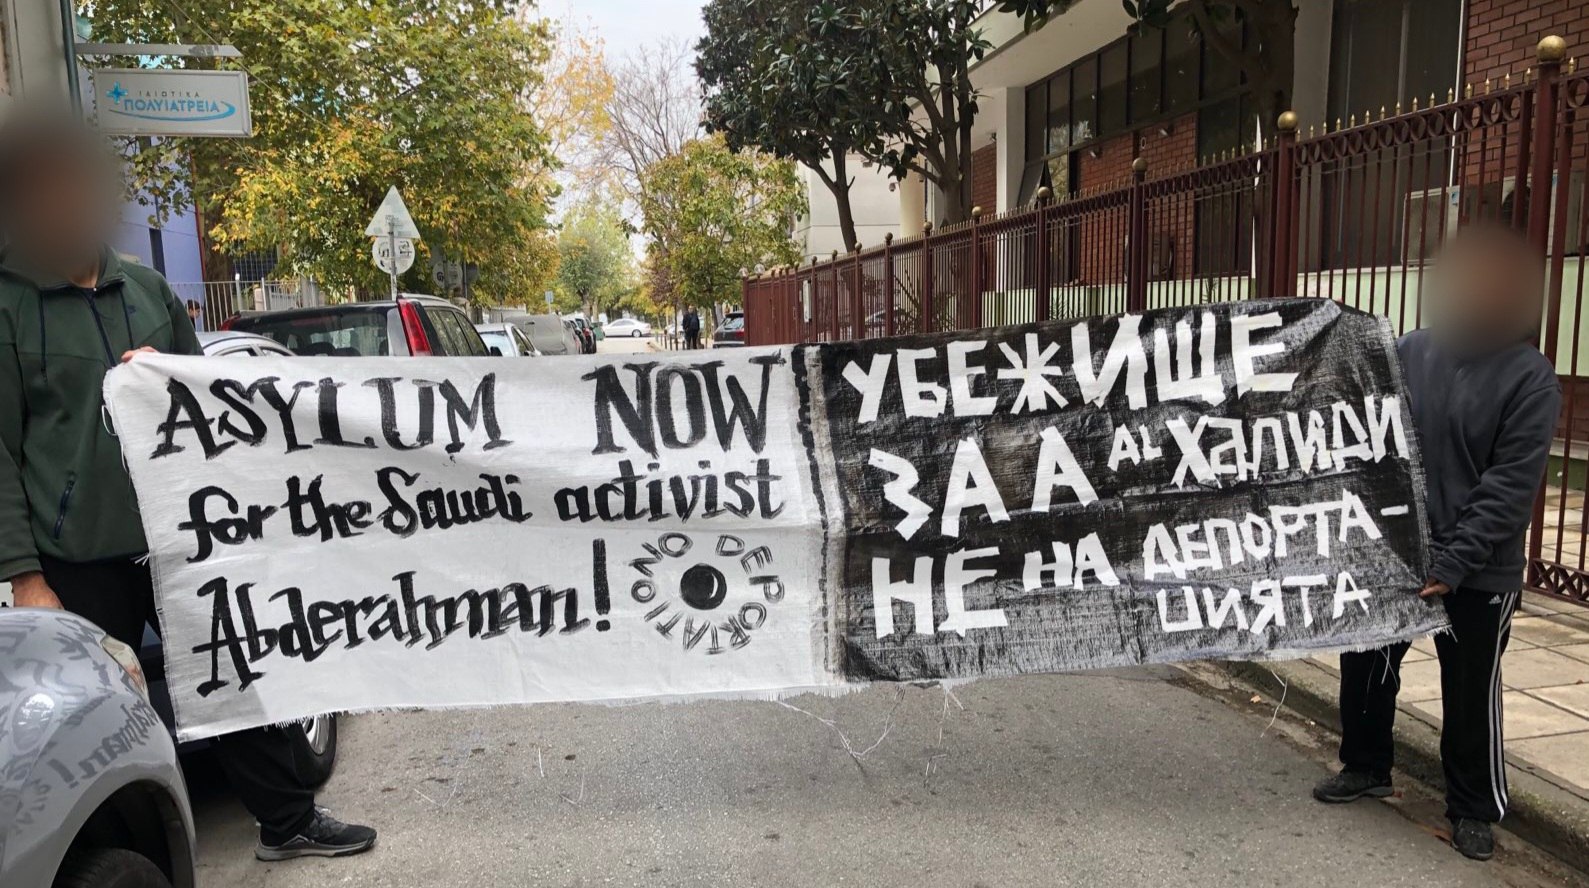 ΙΔΙΩΤΙΚΑ
ΠΟΛΥΙΑΤΡΕΙΑ
ASYLUM NOW
for the Saudi activist
Abderahman!
NO DEPORTATION
УБЕЖИЩЕ
ЗА А AL ХАЛИДИ
НЕ НА ДЕПОРТА-
ЦИЯТА